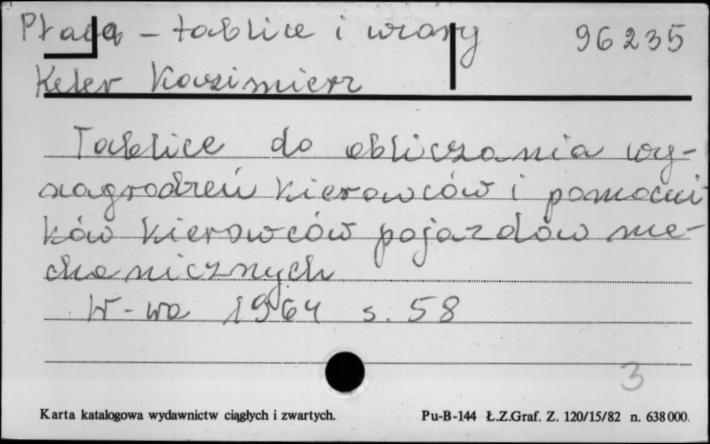 Płaca - tablice i wzory 96235
Keler Kazimierz
Tablice do obliczania wy-
nagrodzeń kierowców i pomocni
ków kierowców pojazdów me-
chanicznych
W-wa 1964 s. 58
3
Karta katalogowa wydawnictw ciągłych i zwartych. Pu-B-144 Ł.Z.Graf. Z. 120/15/82 n. 638000.